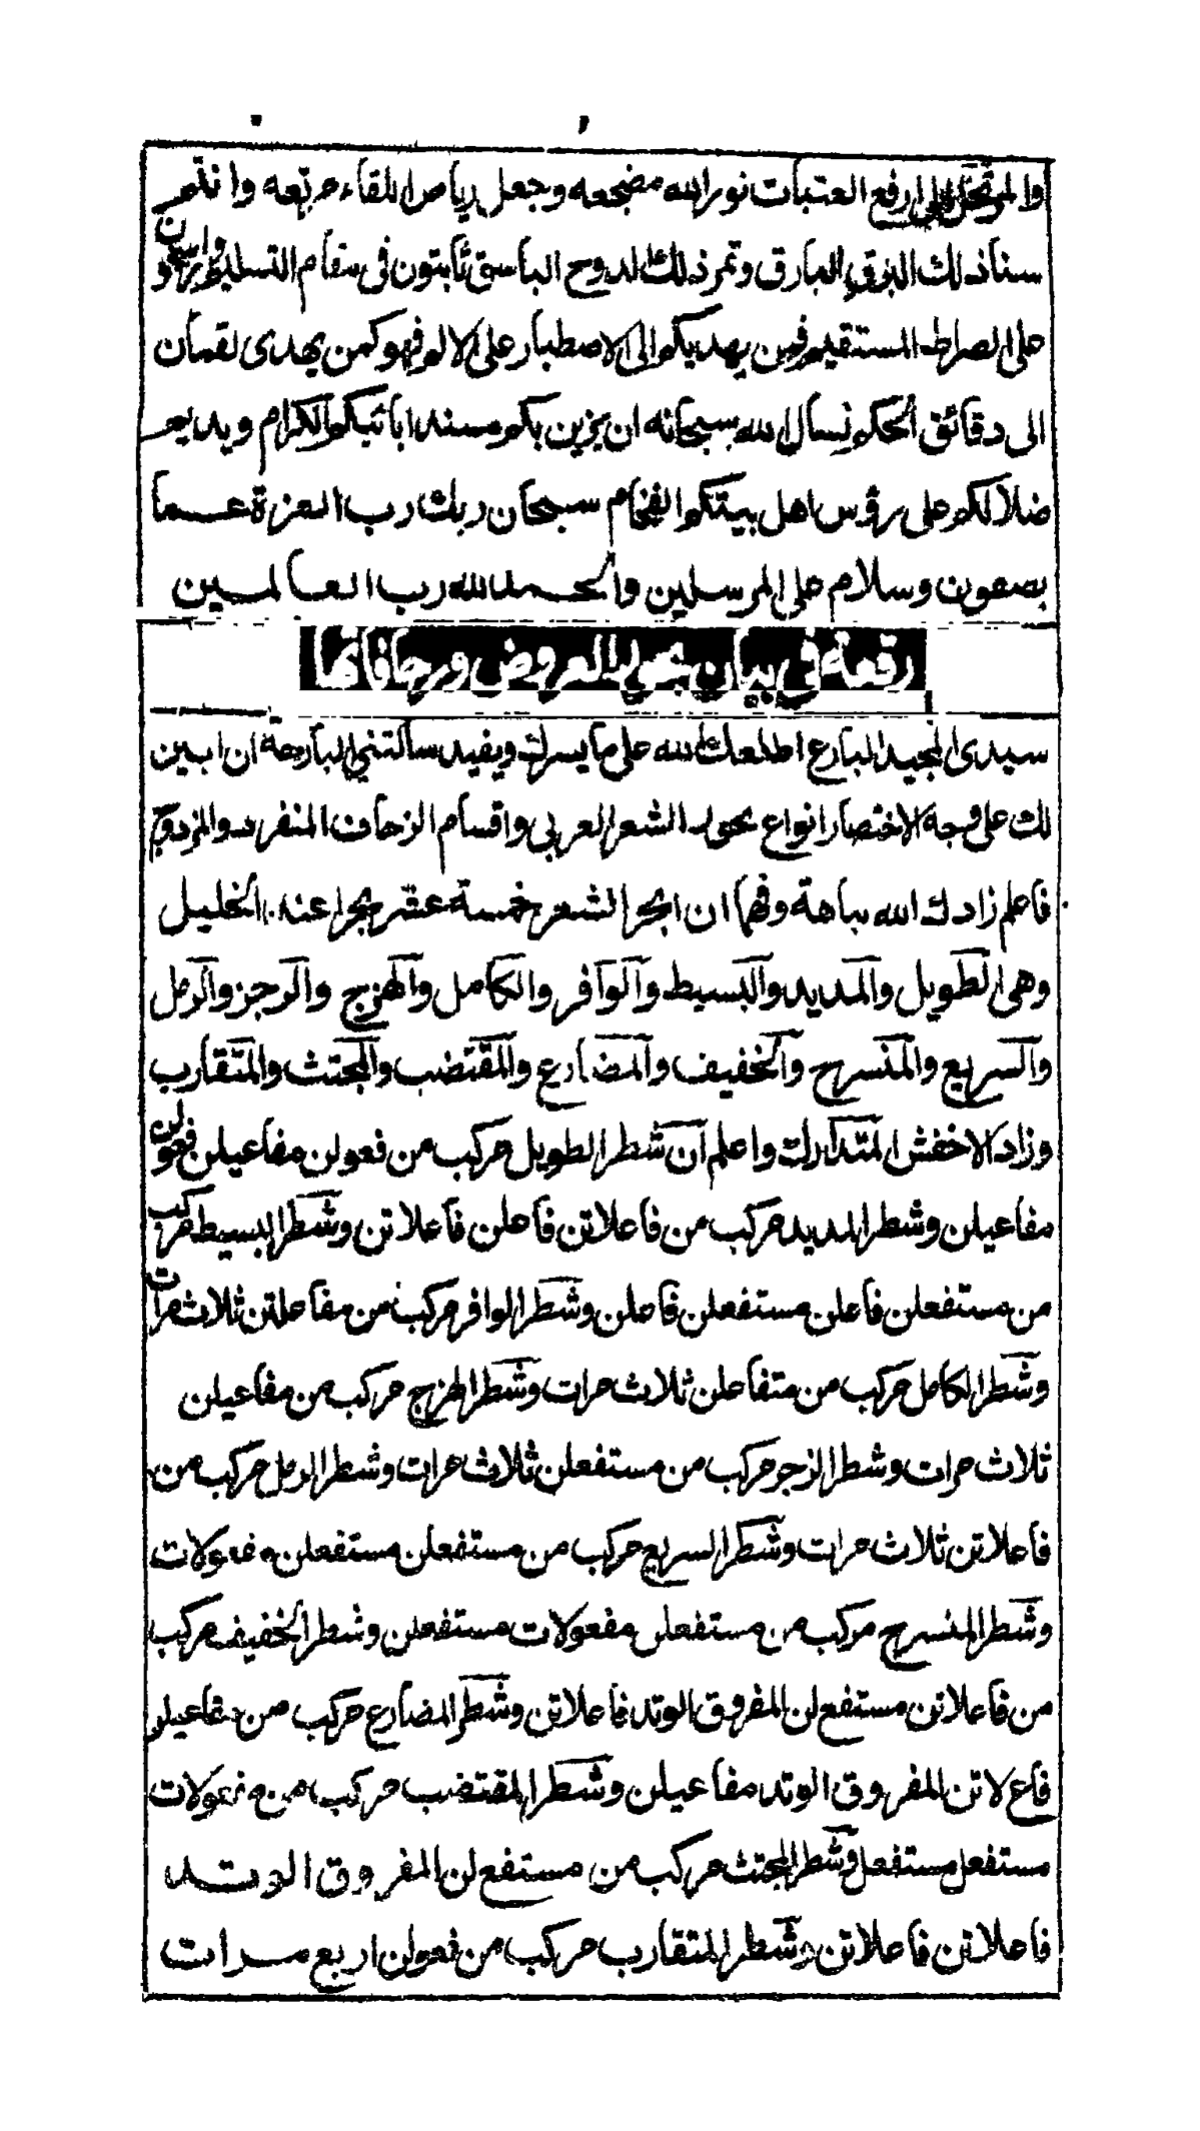 والمرتحل الى ارفع العتبات نور الله مضجعه وجعل رياض اللقاء مربعه وانتم
سنا ذلك البرق البارق وثمر ذلك الدوح الباسق ثابتون فى مقام التسليم وراسخون
على الصراط المستقيم فمن يهديكم الى الاصطبار على الالم فهو كمن يهدى لقمان
الى دقائق الحكم نسأل الله سبحانه ان يزين بكم مسند ابائيكم الكرام ويديم
ضلالكم على رؤس اهل بيتكم الفخام سبحان ربك رب العزة عما
يصفون وسلام على المرسلين والحمد لله رب العالمين
رقعة فى بيان بحور العروض وزحافاتها
سيدى المجيد البارع اطلعك الله على ما يسرك ويفيد سألتنى البارحة ان ابين
لك على وجه الاختصار انواع بحور الشعر العربى واقسام الزحاف المنفرد والمزدوج
فاعلم زادك الله نباهة وفهما ان ابحر الشعر خمسة عشر بحرا عند الخليل
وهى الطويل والمديد والبسيط والوافر والكامل والهزج والرجز والرمل
والسريع والمنسرح والخفيف والمضارع والمقتضب والمجتث والمتقارب
وزاد الاخفش المتدارك واعلم ان شطر الطويل مركب من فعولن مفاعيلن فعولن
مفاعيلن وشطر المديد مركب من فاعلاتن فاعلن فاعلاتن وشطر البسيط مركب
من مستفعلن فاعلن مستفعلن فاعلن وشطر الوافر مركب من مفاعلتن ثلاث مرات
وشطر الكامل مركب من متفاعلن ثلاث مرات وشطر الهزج مركب من مفاعيلن
ثلاث مرات وشطر الرجز مركب من مستفعلن ثلاث مرات وشطر الرمل مركب من
فاعلاتن ثلاث مرات وشطر السريع مركب من مستفعلن مستفعلن مفعولات
وشطر المنسرح مركب من مستفعلن مفعولات مستفعلن وشطر الخفيف مركب
من فاعلاتن مستفع لن المفروق الوتد فاعلاتن وشطر المضارع مركب من مفاعيلن
فاع لاتن المفروق الوتد مفاعيلن وشطر المقتضب مركب من مفعولات
مستفعلن مستفعلن وشطر المجتث مركب من مستفع لن المفروق الوتد
فاعلاتن فاعلاتن وشطر المتقارب مركب من فعولن اربع مرات